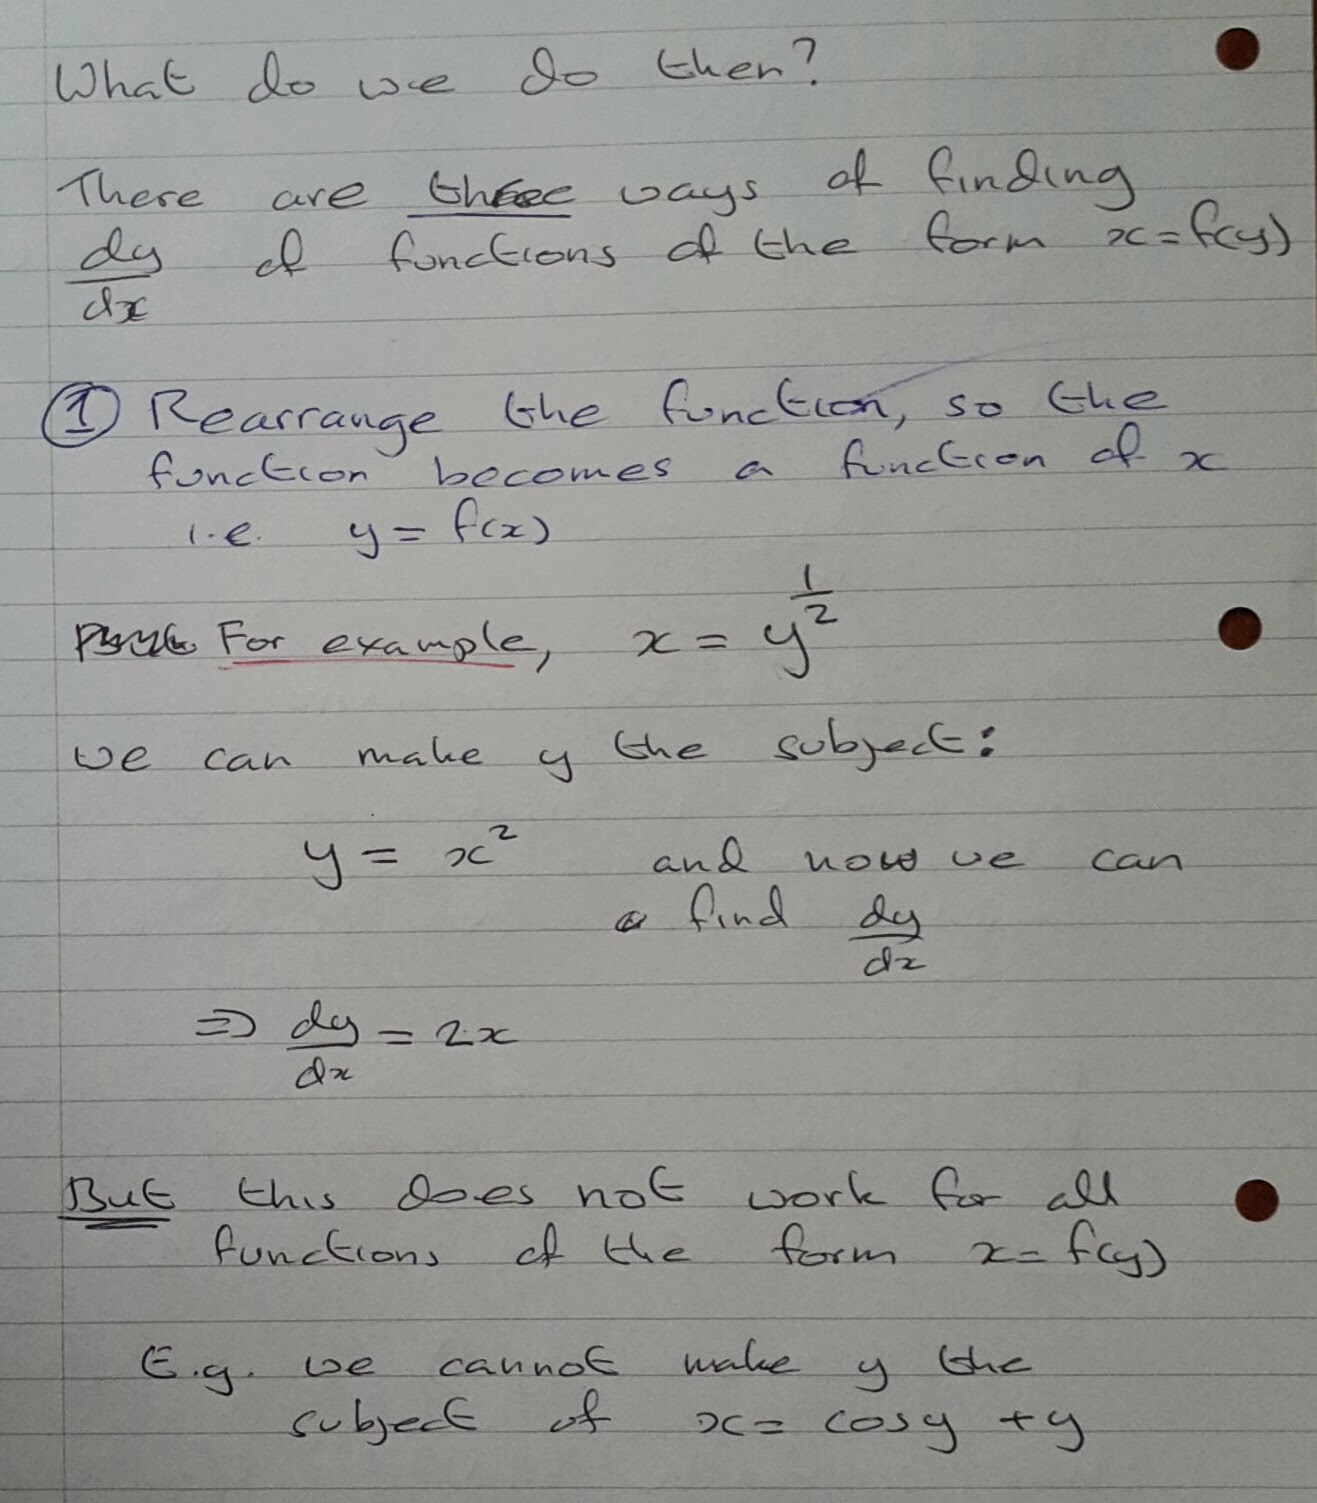 What do we do then?
There are three ways of finding
dy/dx of functions of the form x = f(y)
① Rearrange the function, so the
function becomes a function of x
i.e. y = f(x)
For example, x = y^(1/2)
we can make y the subject:
y = x² and now we can
find dy/dx
⇒ dy/dx = 2x
But this does not work for all
functions of the form x = f(y)
E.g. we cannot make y the
subject of x = cosy + y